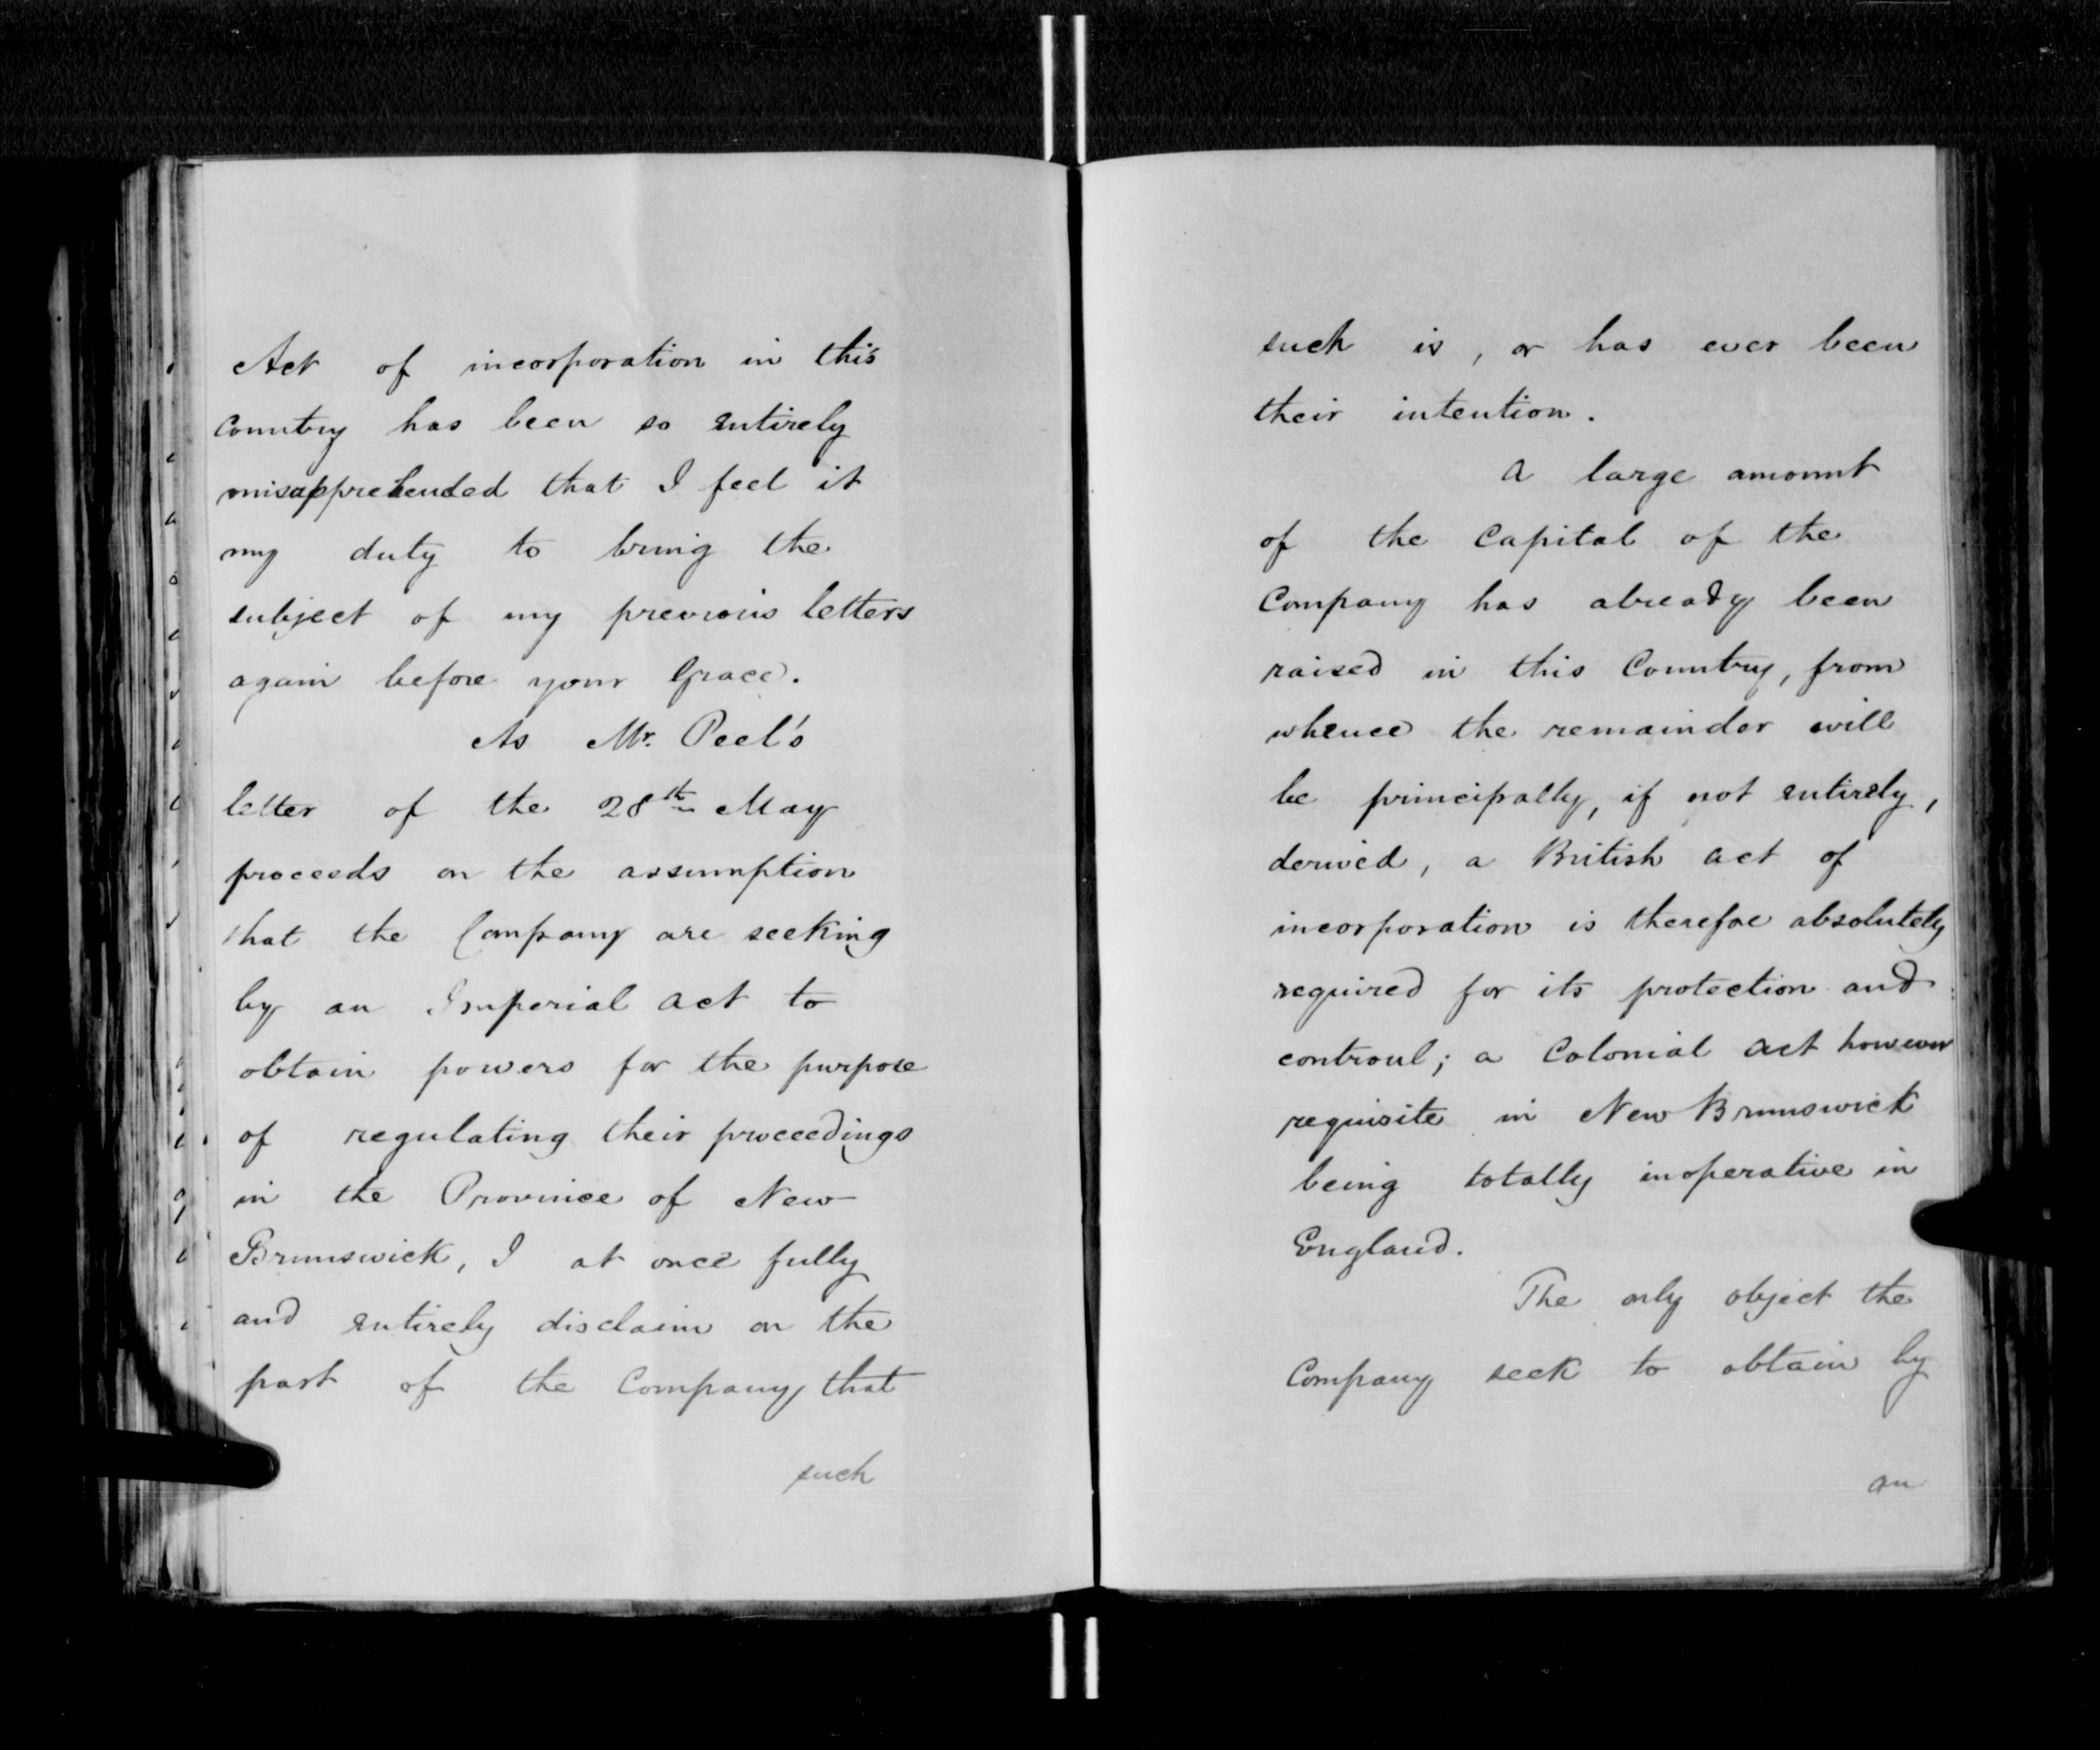 Act of incorporation in this
Country has been so entirely
misapprehended that I feel it
my duty to bring the
subject of my previous letters
again before your Grace.
As Mr. Peel's
letter of the 28th May
proceeds on the assumption
that the Company are seeking
by an Imperial Act to
obtain powers for the purpose
of regulating their proceedings
in the Province of New
Brunswick, I at once fully
and entirely disclaim on the
part of the Company that
such
such is, or has ever been
their intention.
A large amount
of the Capital of the
Company has already been
raised in this Country, from
whence the remainder will
be principally, if not entirely,
derived, a British Act of
incorporation is therefore absolutely
required for its protection and
controul; a Colonial Act however
requisite in New Brunswick
being totally inoperative in
England.
The only object the
Company seek to obtain by
an